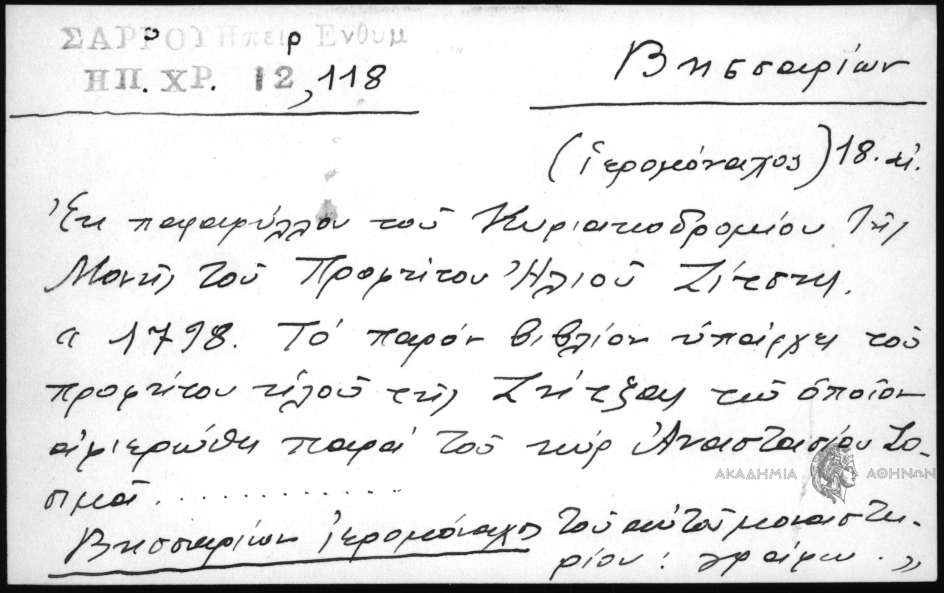 ΣΑΡΡΟΥ Ηπειρ Ενθυμ
ΗΠ. ΧΡ. 12, 118
Βησσαρίων
(ἱερομόναχος) 18. αἰ.
Ἐκ παραφύλλου τοῦ Κυριακοδρομίου τῆς
Μονῆς τοῦ Προφήτου Ἠλιοῦ Ζίτσης.
" 1798. Τό παρόν βιβλίον ὑπάρχει τοῦ
προφήτου ἠλιοῦ τῆς Ζήτζας τοῦ ὁποῖον
ἀφιερώθη παρά τοῦ κύρ Ἀναστασίου Ζο-
σιμᾶ . . . . . . . . . . . .
Βησσαρίων ἱερομόναχος τοῦ αὐτοῦ μοναστη-
ρίου : γράφω . "
ΑΚΑΔΗΜΙΑ ΑΘΗΝΩΝ